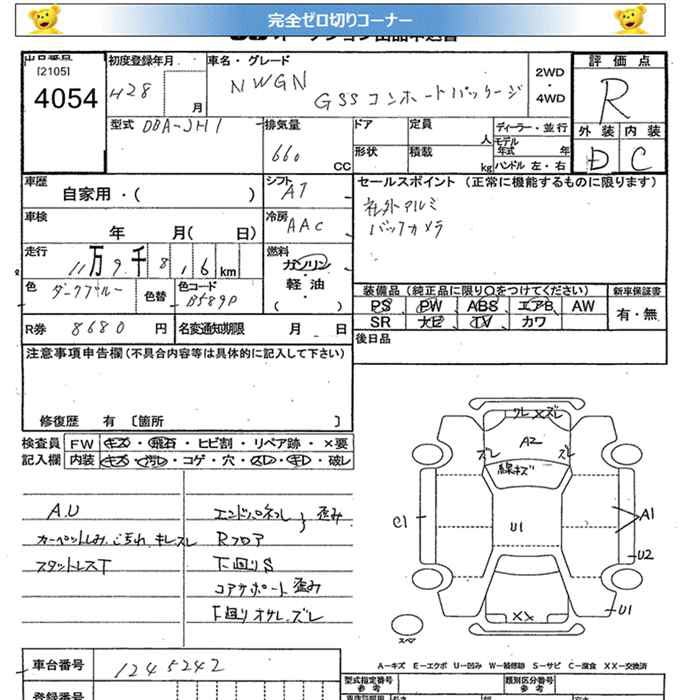 完全ゼロ切りコーナー
[2105]
4054
初度登録年月
H28 月
車名・グレード
NWGN
GSS コンホートパッケージ
2WD
・
4WD
評価点
R
外装 内装
D C
型式 DBA-JH1
排気量
660 CC
ドア
形状
定員 人
積載 kg
ディーラー・並行
モデル年式 年
ハンドル 左・右
車歴
自家用・( )
シフト
AT
車検
年 月( 日)
冷房
AAC
走行
11万9千8 1 6 km
燃料
ガソリン
・
軽油
・
( )
色
ダークブルー
色替
色コード
B589P
R券 8680 円
名変通知期限 月 日
セールスポイント (正常に機能するものに限ります)
社外アルミ
バックカメラ
装備品(純正品に限り○をつけてください)
PS PW ABS エアB AW
SR ナビ TV カワ
新車保証書
有・無
後日品
注意事項申告欄(不具合内容等は具体的に記入して下さい)
修復歴 有 〔箇所 〕
検査員 FW キズ・飛石・ヒビ割・リペア跡・×要
記入欄 内装 キズ・汚れ・コゲ・穴・スレ・キレ・破レ
A.U
カーペットしみ、こもれ、キレスレ
スタットレスT
エンドパネル
Rフロア
歪み
下回りS
コアサポート歪み
下回りオサレ、ズレ
クレ××ズレ
A2
ズレ
ズレ
線キズ
C1
U1
A1
U2
U1
××
スペア
A−キズ E−エクボ U−凹み W−補修跡 S−サビ C−腐食 XX−交換済
車台番号 1245242
登録番号
型式指定番号
参考
類別区分番号
参考